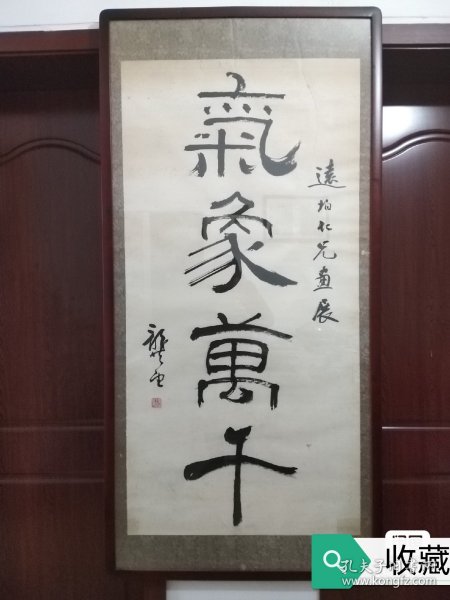 氣象萬千
遠柏仁兄畫展
收藏
孔夫子旧书网
www.kongfz.com